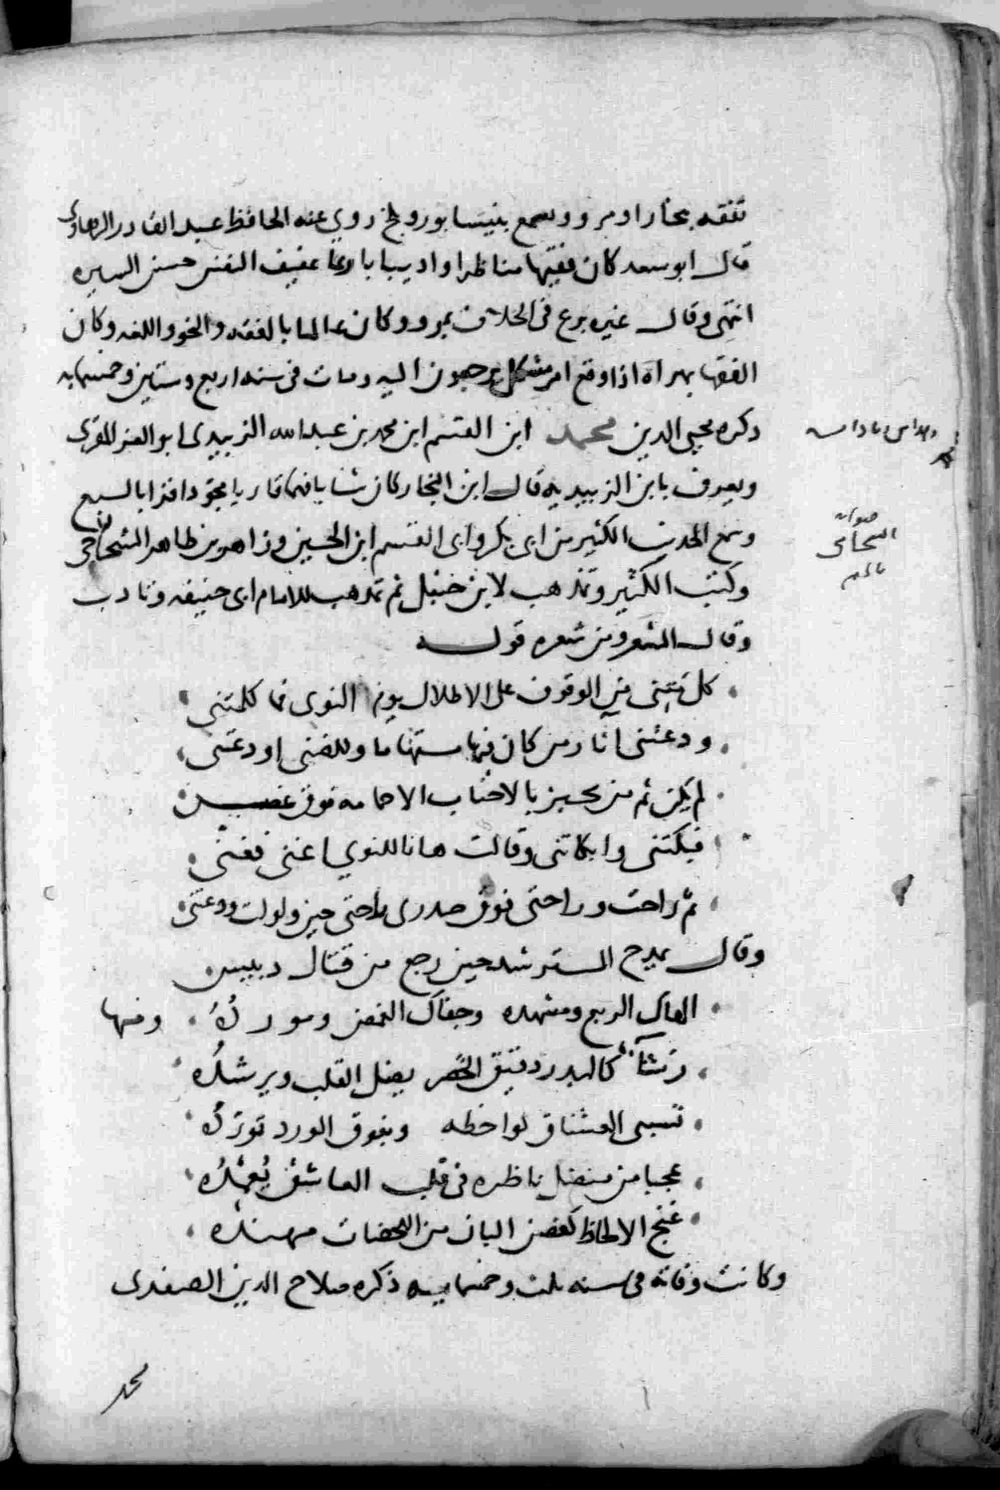 تفقه بخارا ومرو وسمع بنيسابور وبلخ روي عنه الحافظ عبد القادر الرهاوى
قال ابو سعد كان فقيها مناظرا واديبا بارعا عفيف النفس حسن السيره
انتهى وقال غيره برع فى الخلاف بمرو وكان عالما بالفقه والنحو واللغه وكان
الفقها بهراه اذا وقع امر مشكل يرجعون اليه ومات فى سنه اربع وستين وخمسمايه
ذكره محيى الدين محمد ابن القسم ابن محمد بن عبد الله الزبيدى ابو العز المقرى
ويعرف بابن الزبيديه قال ابن النجار كان شابا فهما قاريا مجودا قرا بالسبع
وسمع الحديث الكثير من ابى بكر وابى القسم ابن الحسين وزاهر بن طاهر الشحامى
وكتب الكثير وتمذهب لابن حنبل ثم تمذهب للامام ابى حنيفه وتادب
وقال الشعر ومن شعره قوله
كل متنى من الوقوف على الاطلال يوم النوى فما كلمتنى
ودعتنى اثار من كان فيها مستهاما وللضنى اودعتنى
لم يكن ثم من يحير بالاحباب الا حمامه فوق غصن
فبكتنى وابكاتنى وقالت هانا للنوي اغنى فغنى
ثم راحت وراحتى فوق صدرى راحتى حين ولولت وودعتنى
وقال يمدح المسترشد حين رجع من قتال دبيس
الفاك الربع ومشهده وجفاك الغمض ومورده ومنها
رشأ كالبدر دقيق الخصر يضل القلب ويرشده
تسبى العشاق لواحظه ويفوق الورد تورده
عجبا من منضل ناظره فى قلب العاشق يغمده
غنج الالحاظ كغصن البان من اللحظات مهنده
وكانت وفاته فى سنه ثلث وخمسمايه ذكره صلاح الدين الصفدى
صوابه
الشحامى
محمد